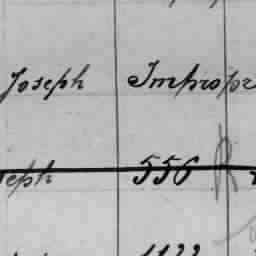 Joseph Impropr
eph 556 R